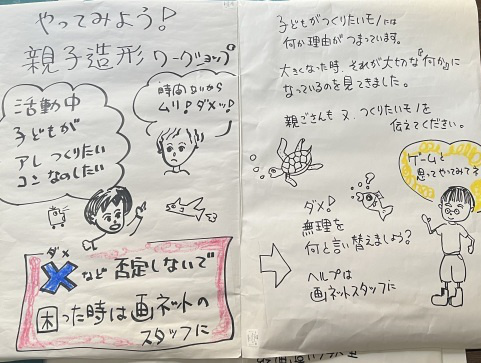 やってみよう!
親子造形ワークショップ
時間ないから
ムリ!ダメッ!
活動中
子どもが
アレ つくりたい
コン なのしたい
ダメ
✕など 否定しないで
困った時は画ネットの
スタッフに
子どもがつくりたいモノには
何か理由がつまっています。
大きくなった時 それが大切な『何か』に
なっているのを見てきました。
親ごさんも 又、つくりたいモノを
伝えてください。
ゲームと
思ってやってみてネ
?
ダメ!
無理を
何と言い替えましょう?
ヘルプは
画ネットスタッフに